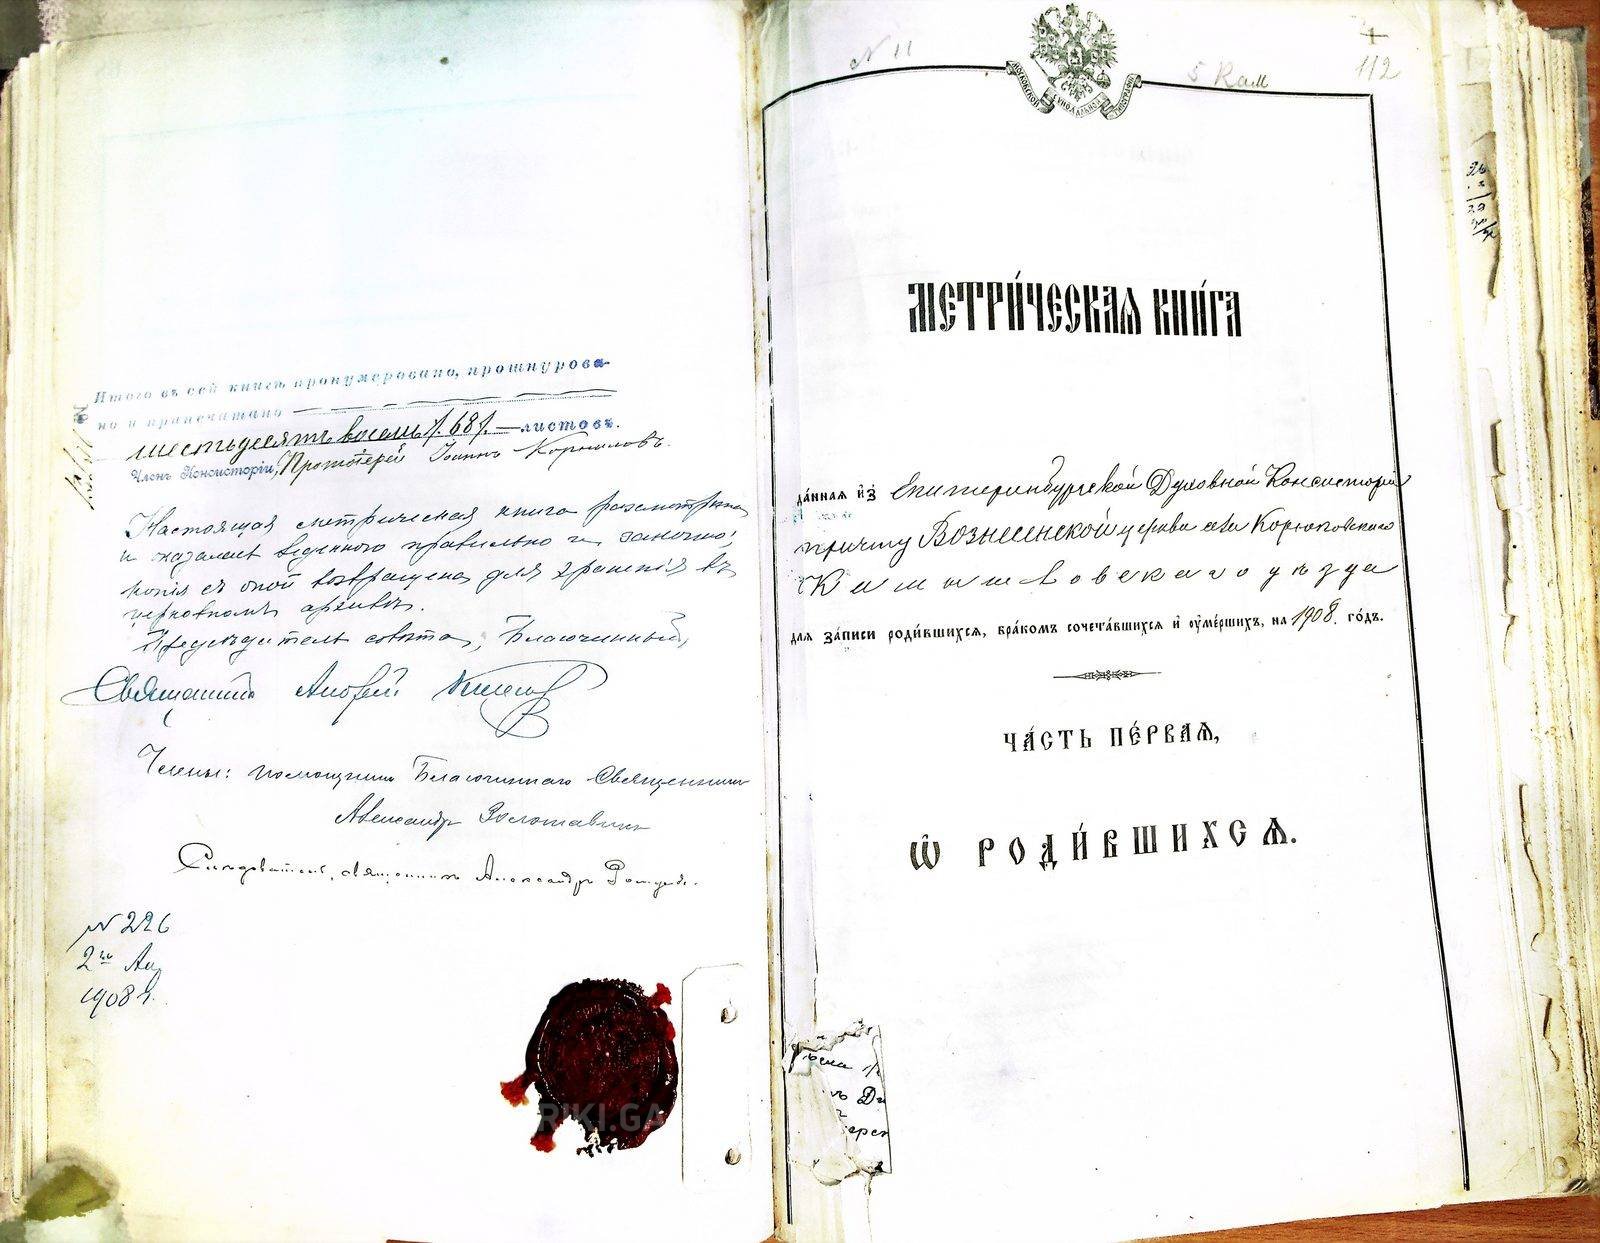 Итого въ сей книгѣ пронумеровано, прошнурова-
но и припечатано
шестьдесятъ восемь /.68/. листовъ.
Членъ Консисторіи, Протоіерей Іоаннъ Корниловъ.
Настоящая метрическая книга разсмотрѣна
и оказалась веденною правильно и законно;
копія съ оной возвращена для храненія въ
церковномъ архивѣ.
Предсѣдатель совѣта, Благочинный,
Священникъ Андрей
Члены: помощникъ Благочиннаго Священникъ
Александръ Золотавинъ
священникъ Александръ
№ 226
2го
1908 г.
№ 11
5 Кам
112
МОСКОВСКОЙ СѴНОДАЛЬНОЙ ТИПОГРАФІИ
МЕТРИ́ЧЕСКАѦ КНИ́ГА
да́нная и҆зъ Екатеринбургской Духовной Консисторіи
причту Вознесенской церкви села Корюковскаго
Камышловскаго уѣзда
для за́писи роди́вшихся, бра́комъ сочета́вшихся и҆ оу҆ме́ршихъ, на 1908. го́дъ.
ЧА́СТЬ ПЕ́РВАѦ,
Ѽ РОДИ́ВШИХСѦ.
RIKI.GA